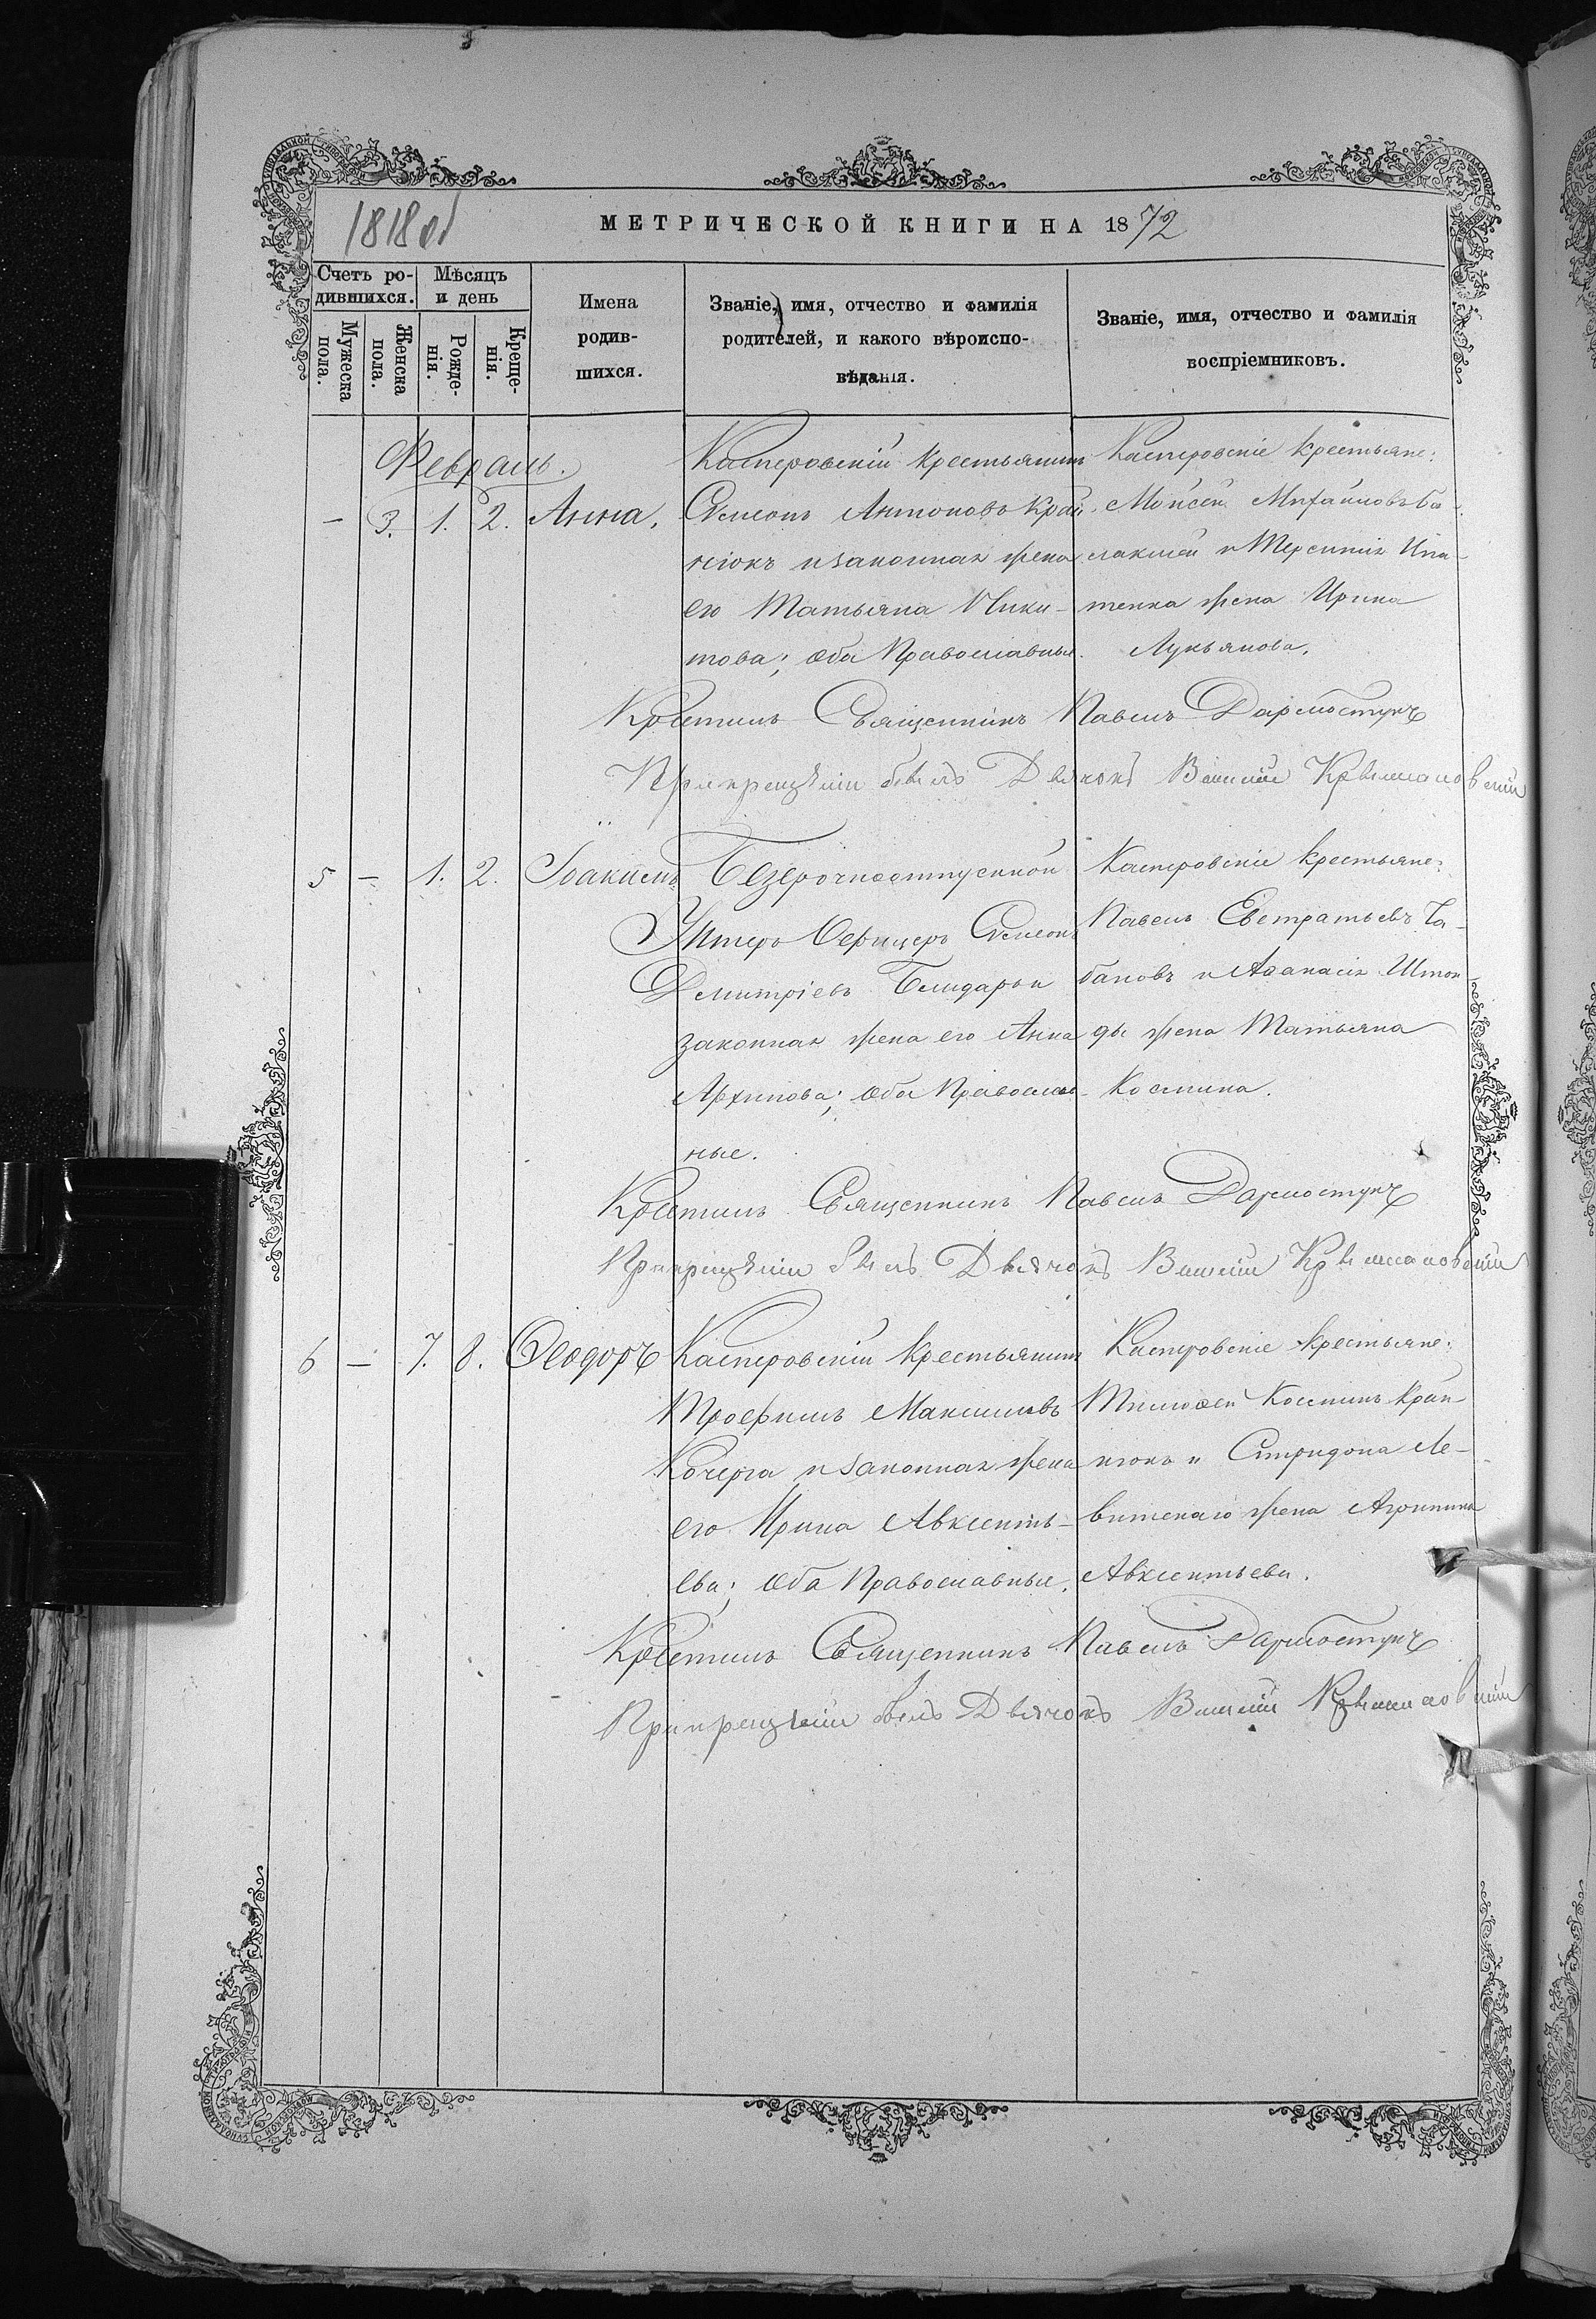 1818 об
МЕТРИЧЕСКОЙ КНИГИ НА 1872
Счетъ ро-
дившихся.
Мѣсяцъ
и день
Мужеска
пола.
Женска
пола.
Рожде-
нія.
Креще-
нія.
Имена
родив-
шихся.
Званіе, имя, отчество и фамилія
родителей, и какого вѣроиспо-
вѣданія.
Званіе, имя, отчество и фамилія
воспріемниковъ.
Февраль.
- 3. 1. 2. Анна.
Касперовскій крестьянинъ
Сѵмеонъ Антоновъ Край
нюкъ и законная жена
его Татьяна Ники-
това; оба Православные.
Касперовскіе крестьяне:
Мойсей Михайловъ Ба-
и Терентія Ігна-
тенка жена Ирина
Лукьянова.
Крестилъ Священникъ Павелъ Дармостукъ
Прикрещеніи былъ Дьячокъ Крыжановскій
5 - 1. 2. Іоакимъ
Безсрочноотпускной
Унтеръ Офицеръ Сѵмеонъ
Дмитріевъ и
законная жена его Анна
Архипова; оба Православ-
ные.
Касперовскіе крестьяне:
Павелъ Евстратьевъ Ча-
бановъ и Аѳанасія Штон
ды жена Татьяна
Космина.
Крестилъ Священникъ Павелъ Дармостукъ
Прикрещеніи былъ Дьячокъ Крыжановскій
6 - 7. 8. Ѳеодоръ
Касперовскій крестьянинъ
Трофимъ Максимовъ
Кочерга и законная жена
его Ирина Авксенть-
ева; оба Православные.
Касперовскіе крестьяне:
Тимоѳей Косминъ Край
нюкъ и Спиридона Ле-
витскаго жена Агрипина
Авксентьева.
Крестилъ Священникъ Павелъ Дармостукъ
Прикрещеніи былъ Дьячокъ Крыжановскій